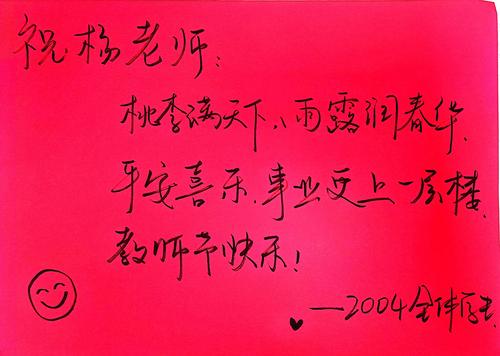 祝杨老师:
桃李满天下、雨露润春华.
平安喜乐.事业更上一层楼.
教师节快乐!
——2004全体学生